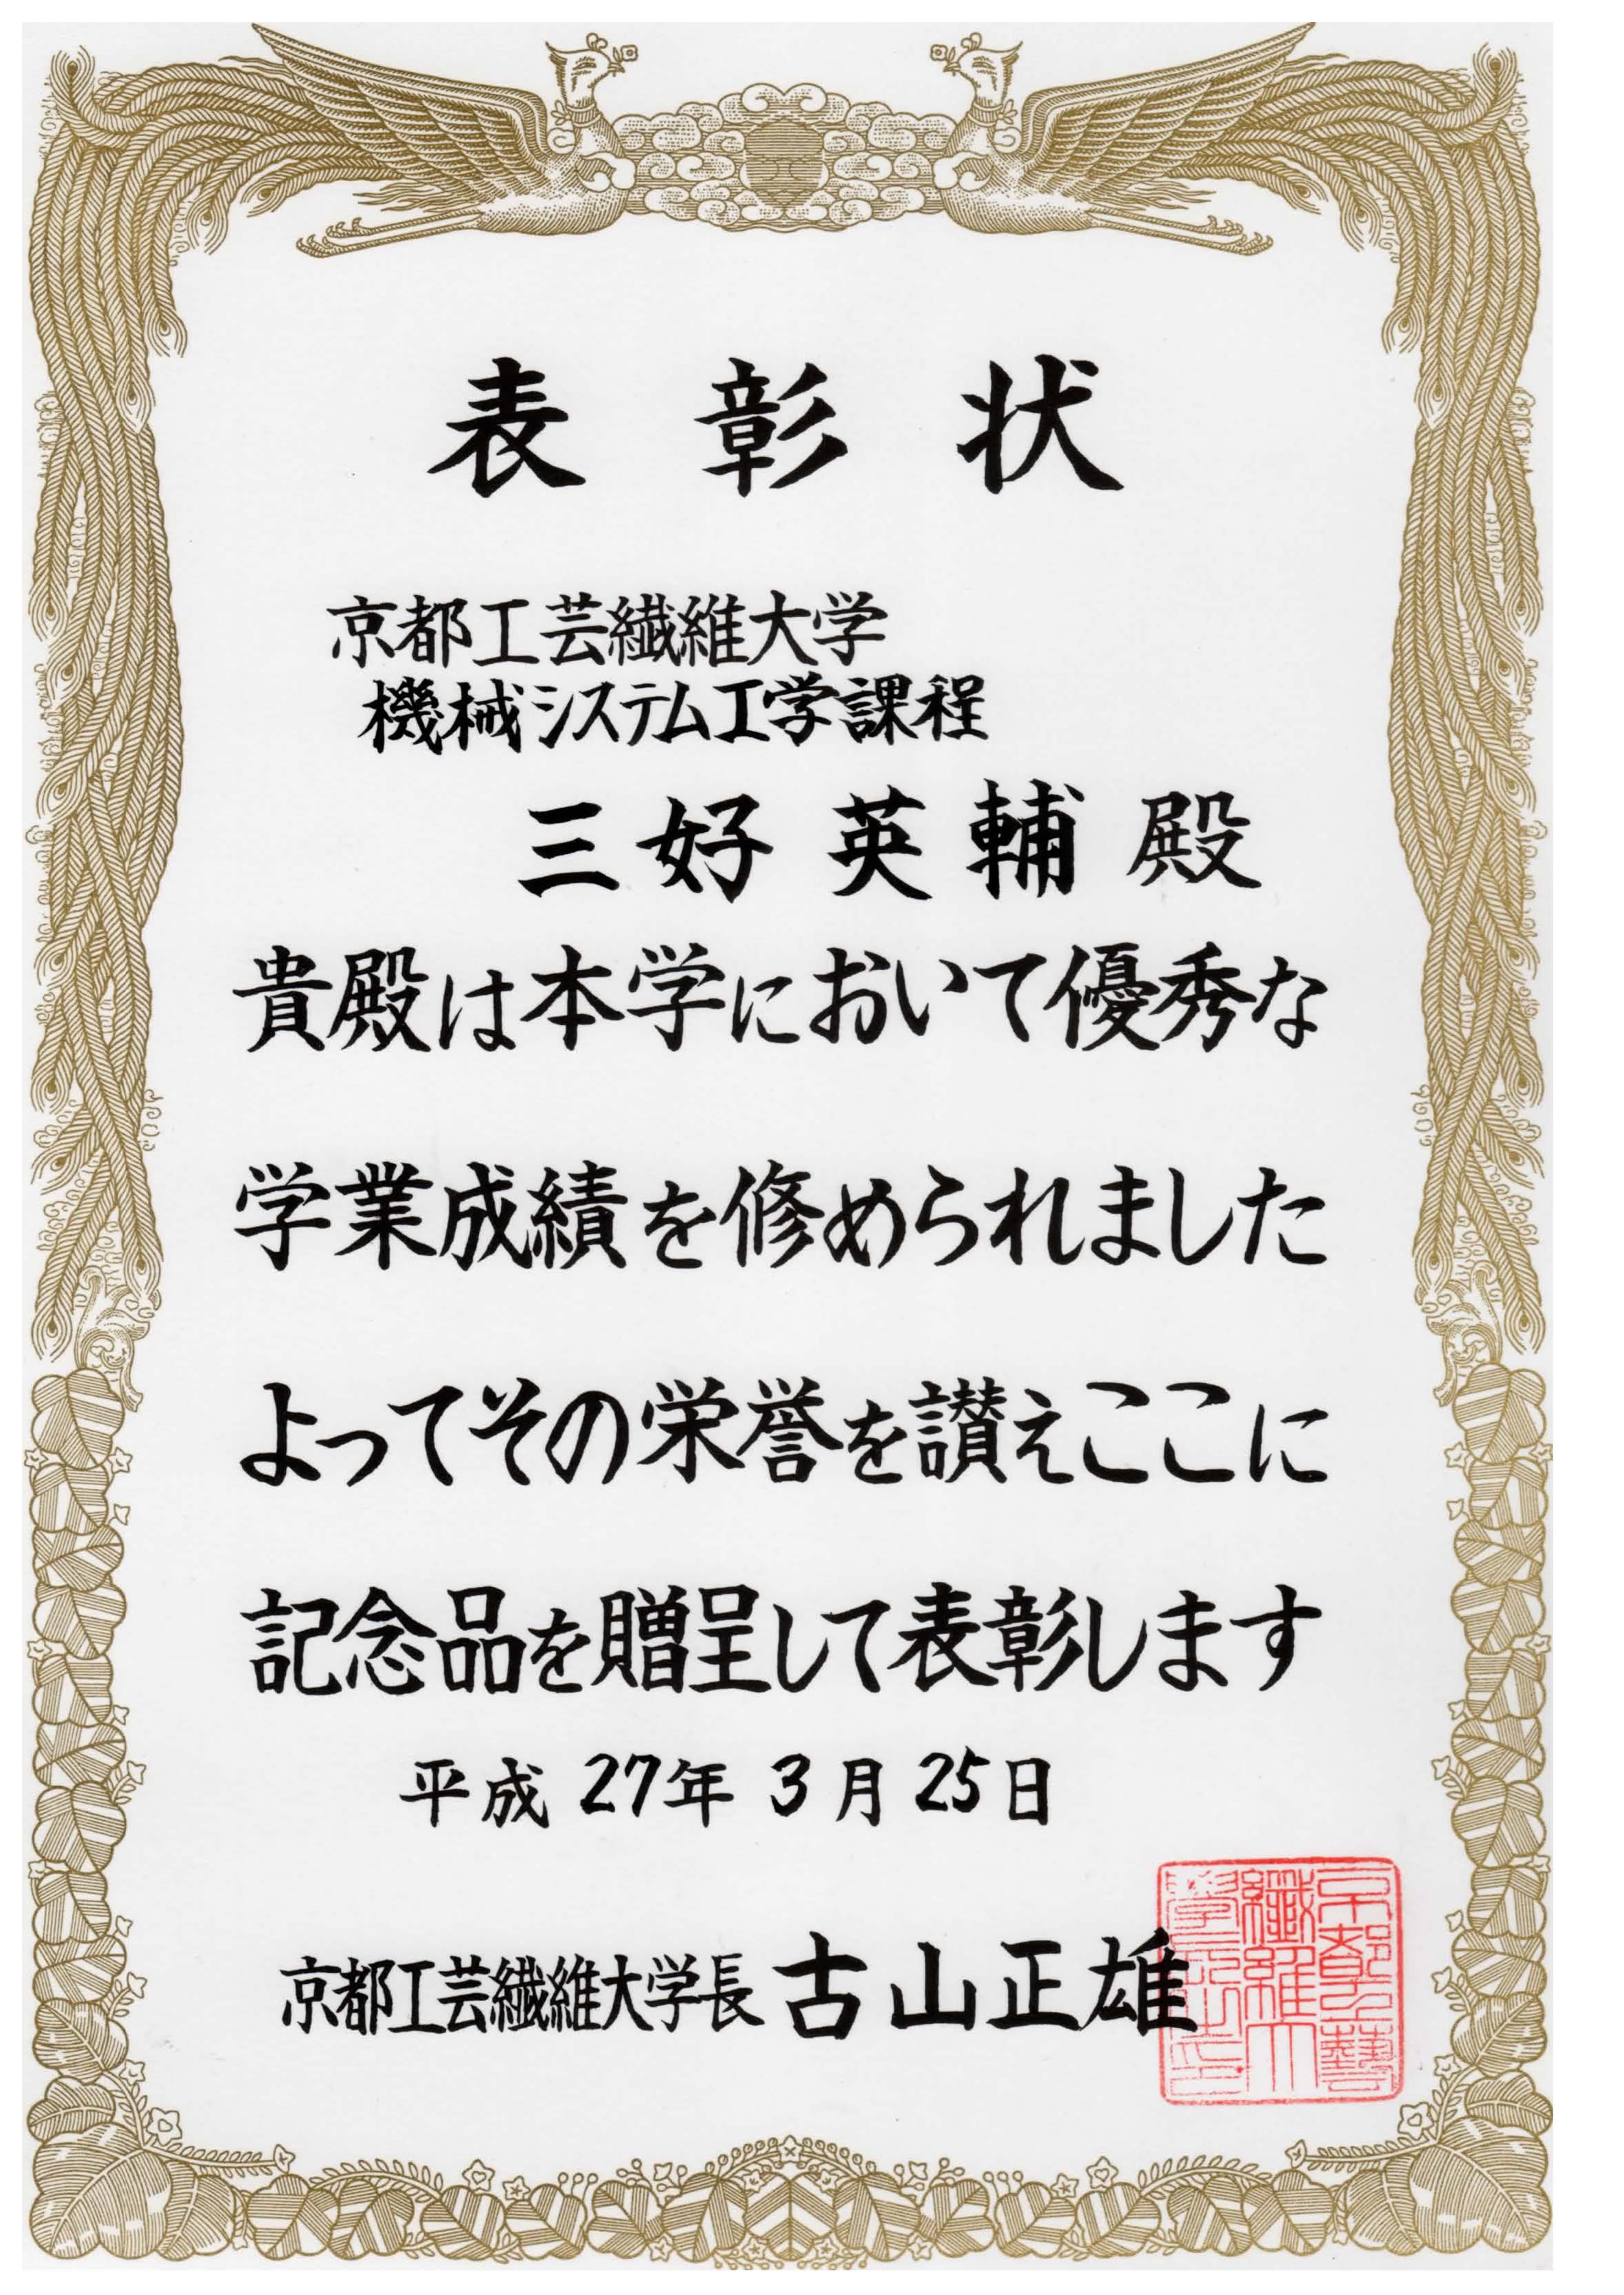 表彰状
京都工芸繊維大学
機械システム工学課程
三好英輔殿
貴殿は本学において優秀な
学業成績を修められました
よってその栄誉を讃えここに
記念品を贈呈して表彰します
平成27年3月25日
京都工芸繊維大学長 古山正雄